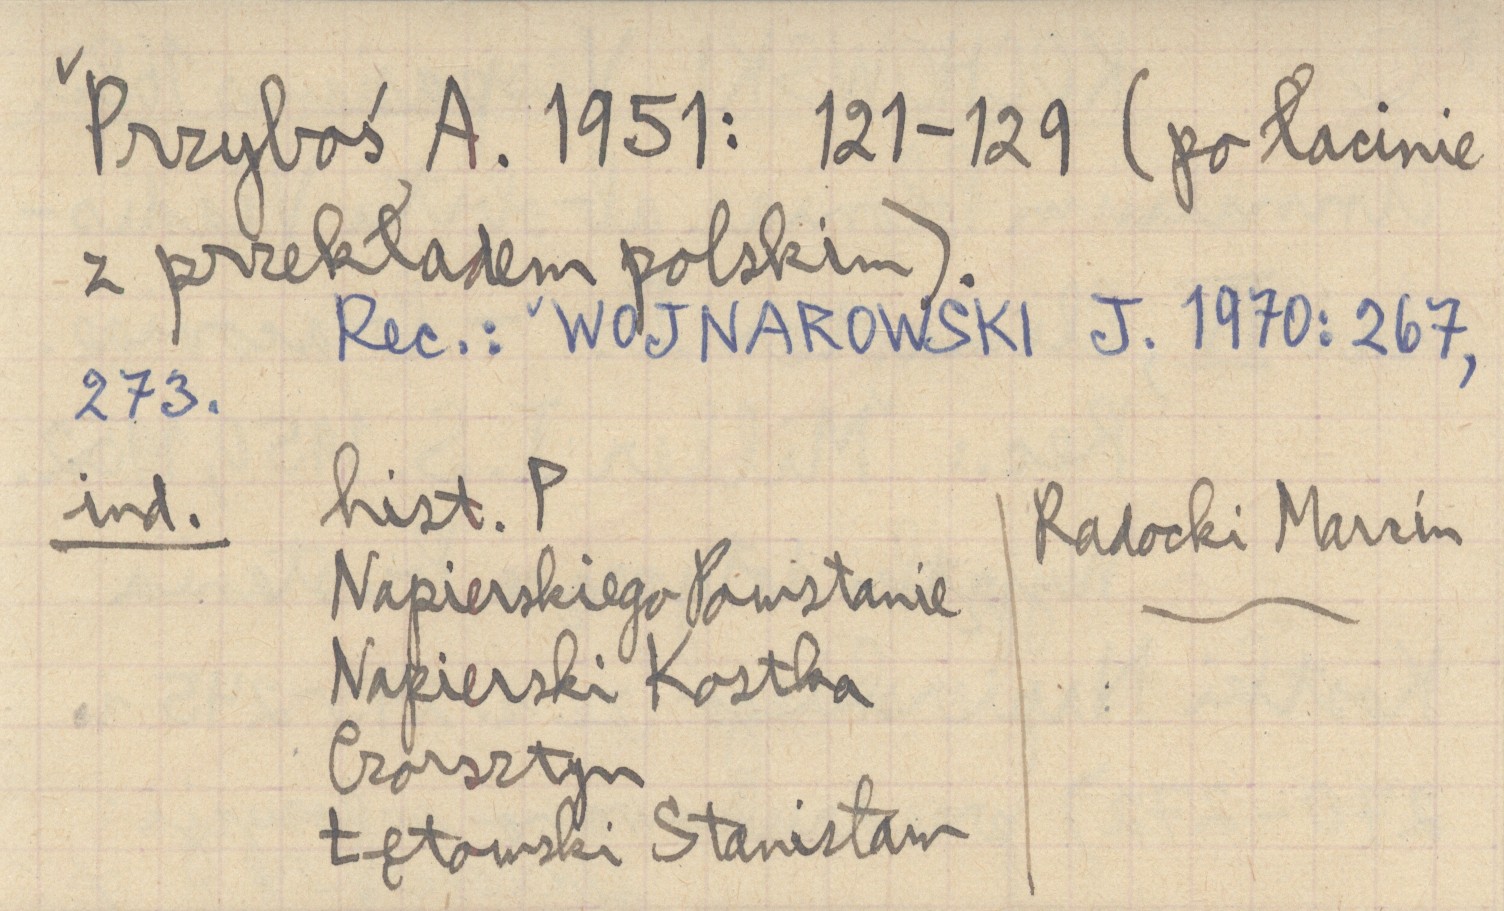 ✓Przyboś A. 1951: 121-129 (po łacinie
z przekładem polskim).
Rec.: ✓WOJNAROWSKI J. 1970: 267,
273.
ind. hist. P
Napierskiego Powstanie
Napierski Kostka
Czorsztyn
Łętowski Stanisław
Radocki Marcin